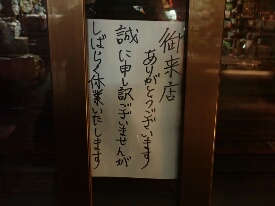 御来店
ありがとうございます
誠に申し訳ございませんが
しばらく休業いたします